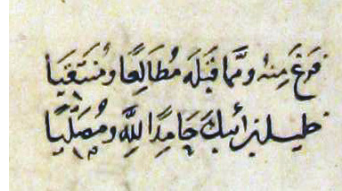 فَرَغَ مِنهُ ومِمَّا قَبْلَه مُطَالِعًا ومُنتَقِيَا
خليل بن أيبك حَامِدًا لِلَّهِ ومُصَلِّيًا